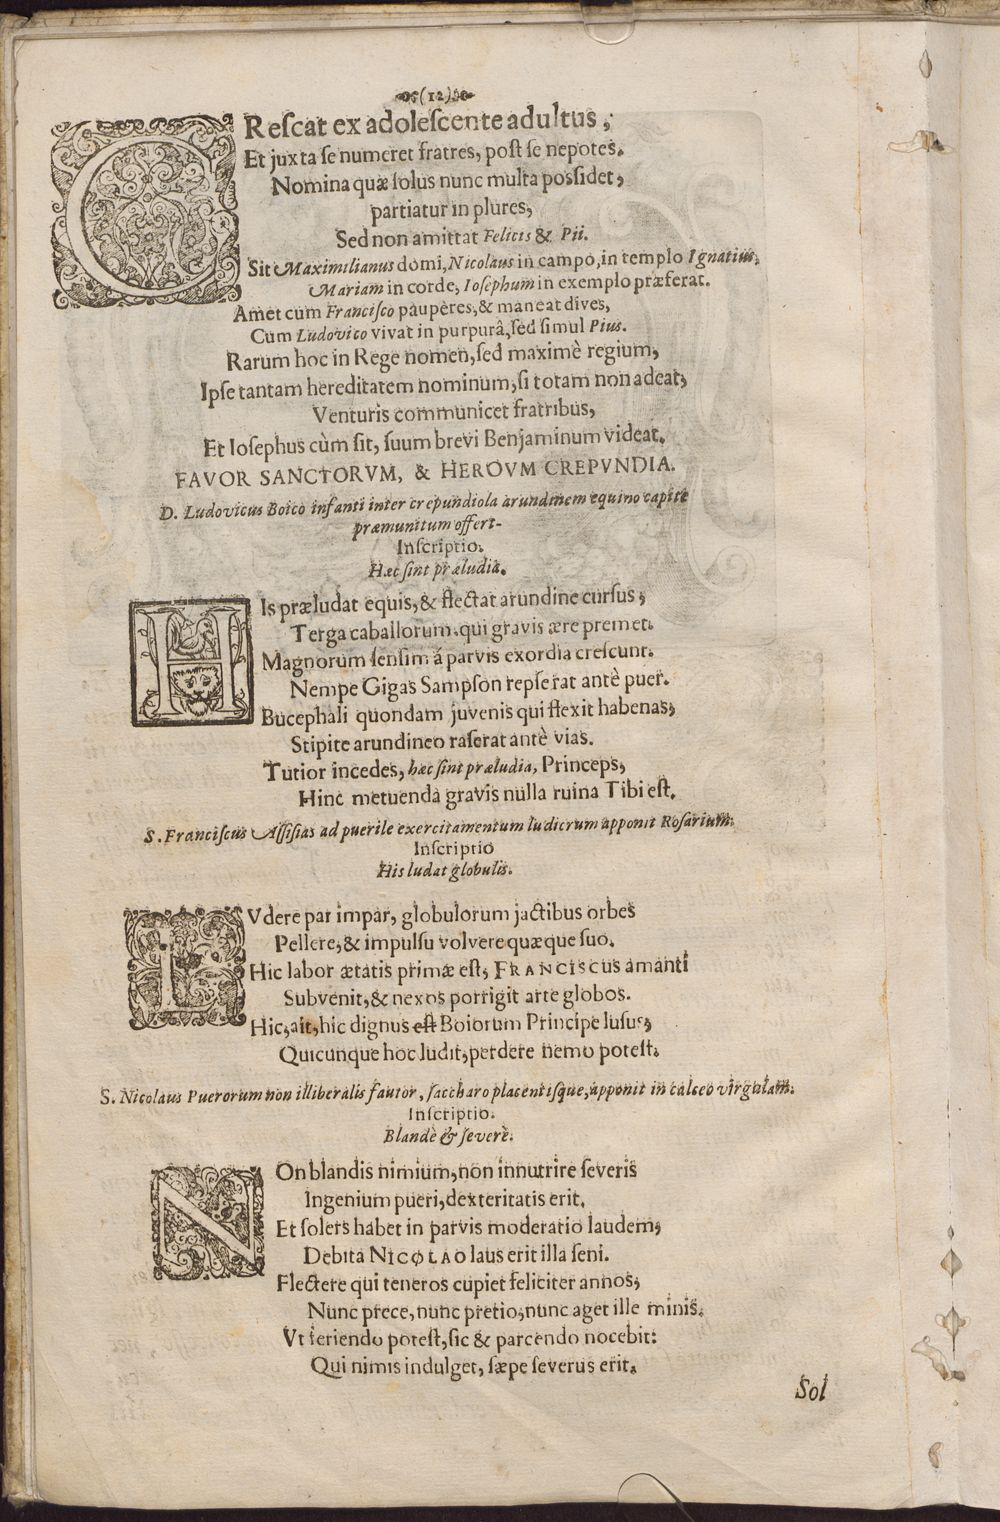 (12)
CRescat ex adolescente adultus;
Et juxta se numeret fratres, post se nepotes.
Nomina quæ solus nunc multa possidet,
partiatur in plures,
Sed non amittat Felicis & Pii.
Sit Maximilianus domi, Nicolaus in campo, in templo Ignatius,
Mariam in corde, Iosephum in exemplo præferat.
Amet cum Francisco pauperes, & maneat dives,
Cum Ludovico vivat in purpurâ, sed simul Pius.
Rarum hoc in Rege nomen, sed maximè regium,
Ipse tantam hereditatem nominum, si totam non adeat,
Venturis communicet fratribus,
Et Iosephus cùm sit, suum brevi Benjaminum videat.
FAVOR SANCTORVM, & HEROVM CREPVNDIA.
D. Ludovicus Boico infanti inter crepundiola arundinem equino capite
præmunitum offert-
Inscriptio.
Hæc sint præludia.
HIs præludat equis, & flectat arundine cursus,
Terga caballorum qui gravis ære premet.
Magnorum sensim á parvis exordia crescunt.
Nempe Gigas Sampson repserat antè puer.
Bucephali quondam juvenis qui flexit habenas,
Stipite arundineo raserat antè vias.
Tutior incedes, hæc sint præludia, Princeps,
Hinc metuenda gravis nulla ruina Tibi est.
S. Franciscus Assisias ad puerile exercitamentum ludicrum apponit Rosarium.
Inscriptio
His ludat globulis.
LVdere par impar, globulorum jactibus orbes
Pellere, & impulsu volvere quæque suo.
Hic labor ætatis primæ est, FRANCISCUS amanti
Subvenit, & nexos porrigit arte globos.
Hic, ait, hic dignus est Boiorum Principe lusus,
Quicunque hoc ludit, perdere nemo potest.
S. Nicolaus Puerorum non illiberalis fautor, saccharo placentisque, apponit in calceo virgulam.
Inscriptio.
Blandè & severè.
NOn blandis nimium, non innutrire severis
Ingenium pueri, dexteritatis erit.
Et solers habet in parvis moderatio laudem,
Debita NICOLAO laus erit illa seni.
Flectere qui teneros cupiet feliciter annos,
Nunc prece, nunc pretio, nunc aget ille minis.
Vt feriendo potest, sic & parcendo nocebit:
Qui nimis indulget, sæpe severus erit.
Sol